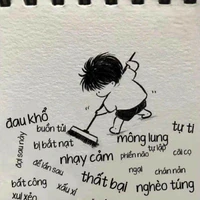 đau khổ
buồn tủi
mông lung
tự ti
bị bắt nạt
đợi sau này
nhạy cảm
phiền não
tự lập
cãi cọ
để lần sau
ngại
chán nản
bất công
xấu xí
thất bại
nghèo túng
xui xẻo